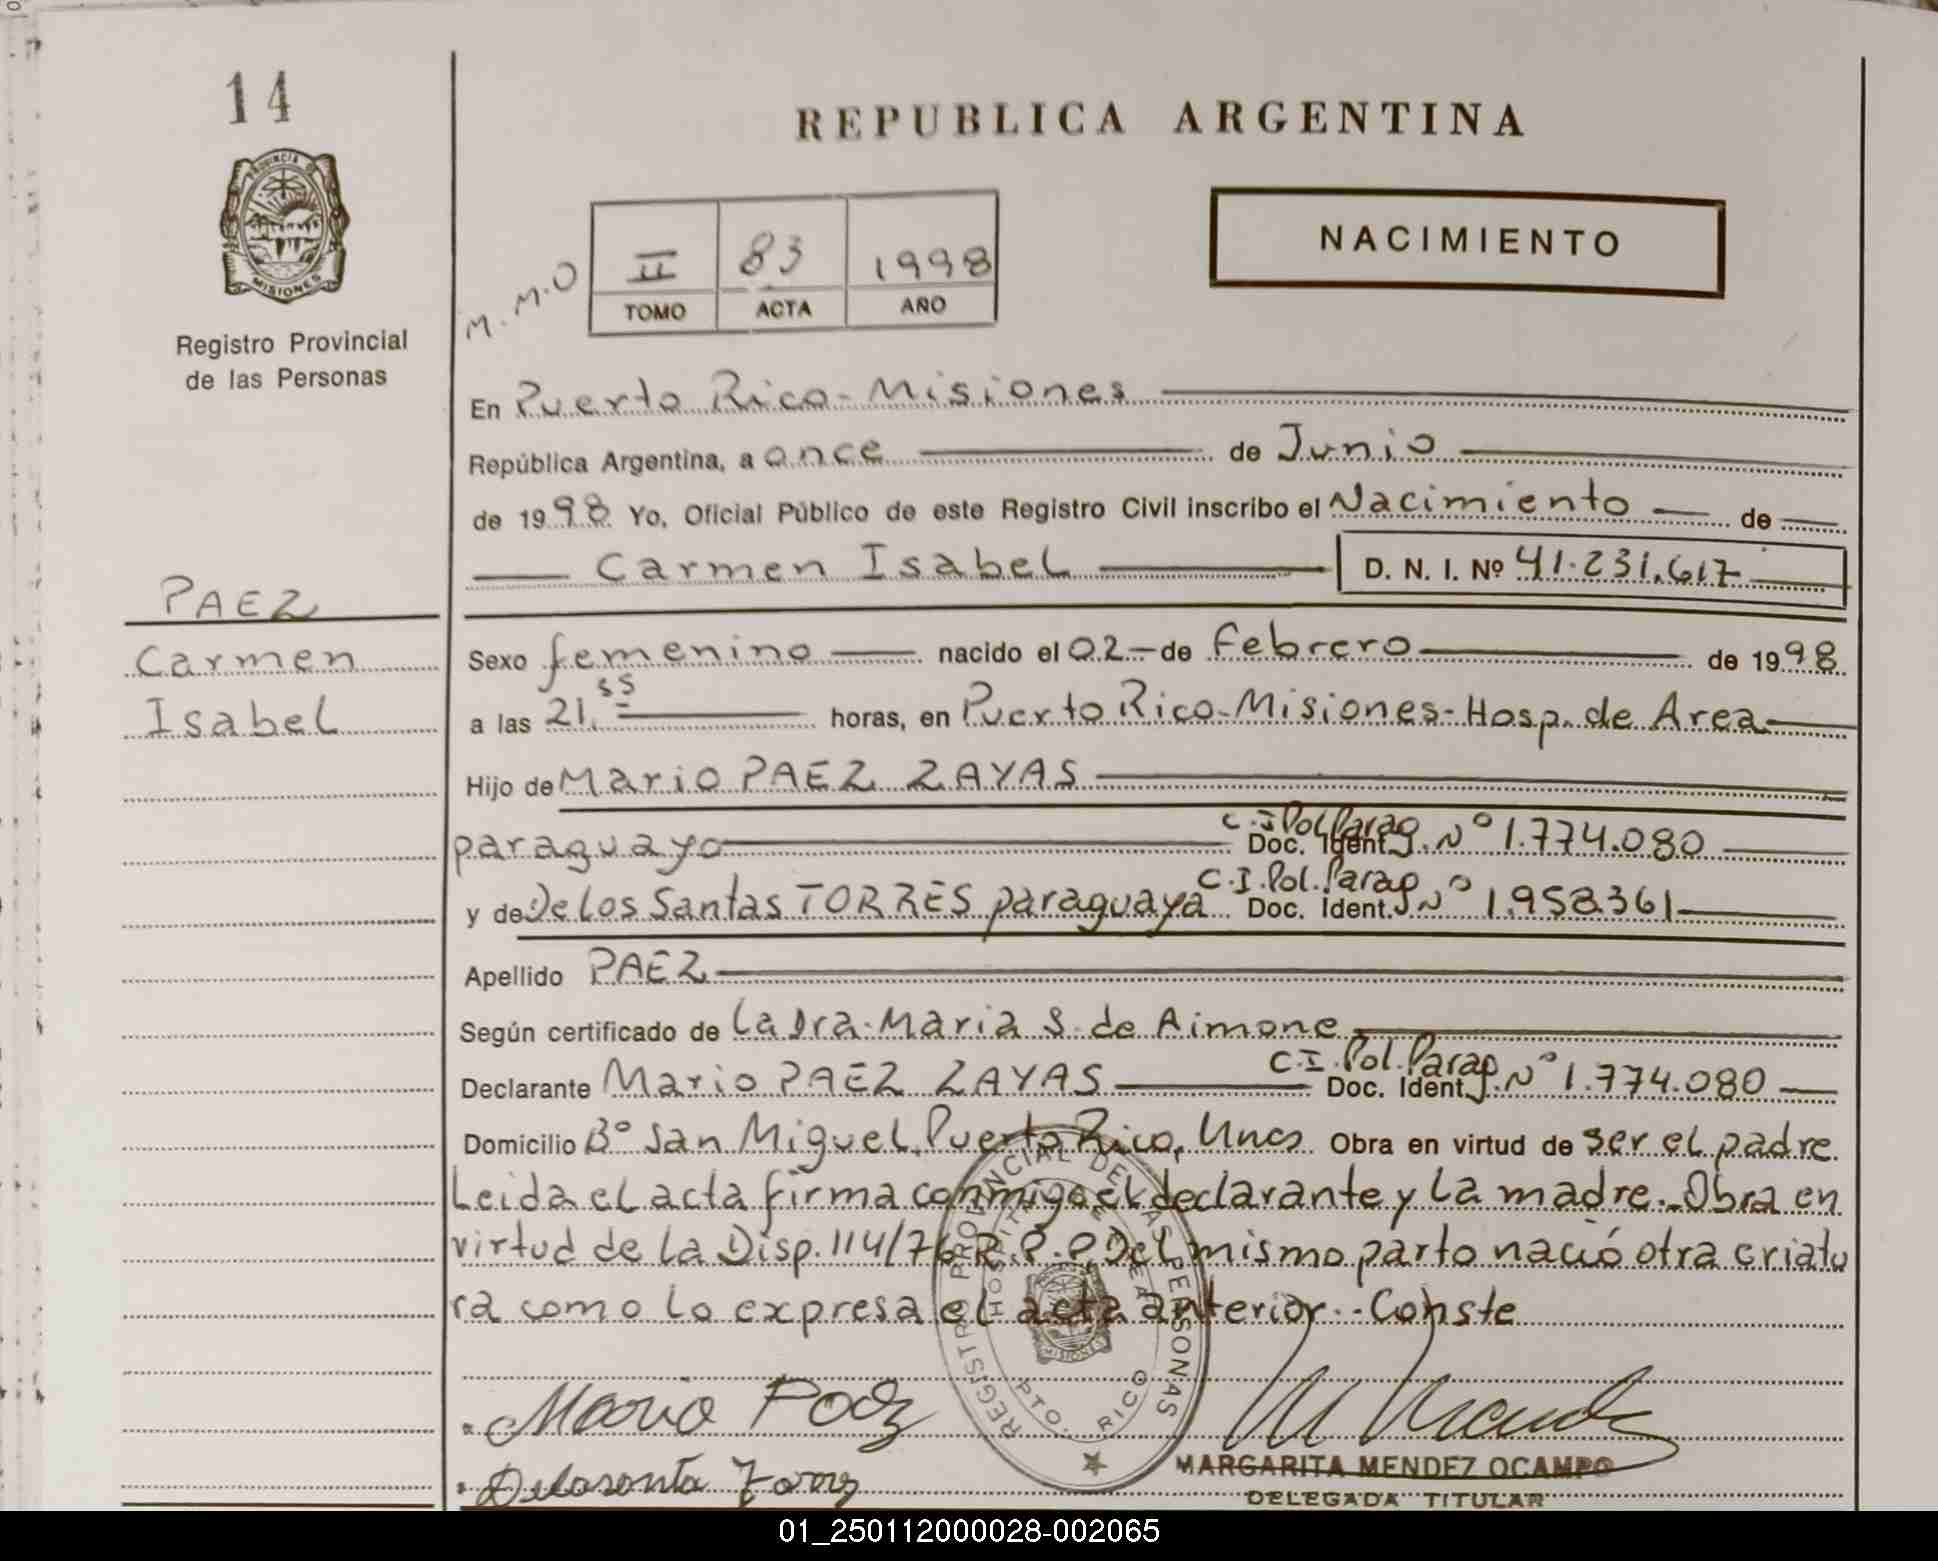 14
REPUBLICA ARGENTINA
PROVINCIA DE
MISIONES
Registro Provincial
de las Personas
M.M.O
II 83 1998
TOMO ACTA AÑO
NACIMIENTO
En Puerto Rico - Misiones
República Argentina, a once de Junio
de 1998 Yo, Oficial Público de este Registro Civil inscribo el Nacimiento de
Carmen Isabel D. N. I. Nº 41.231.617
PAEZ
Carmen
Isabel
Sexo femenino nacido el 02 de Febrero de 1998
a las 21.55 horas, en Puerto Rico - Misiones - Hosp. de Area
Hijo de Mario PAEZ ZAYAS
paraguayo Doc. Ident. C.I. Pol. Parag. Nº 1.774.080
y de De los Santas TORRES paraguaya Doc. Ident. C.I. Pol. Parag. Nº 1.958361
Apellido PAEZ
Según certificado de La Dra. Maria S. de Aimone
Declarante Mario PAEZ ZAYAS Doc. Ident. C.I. Pol. Parag. Nº 1.774.080
Domicilio Bº San Miguel, Puerto Rico, Mnes Obra en virtud de ser el padre.
Leida el acta firma conmigo el declarante y la madre. - Obra en
virtud de la Disp. 114/76 R.P.P Del mismo parto nació otra criatu
ra como lo expresa el acta anterior. - Conste
REGISTRO PROVINCIAL DE LAS PERSONAS
HOSPITAL DE AREA
MISIONES
PTO. RICO
Mario Paez
MARGARITA MENDEZ OCAMPO
DELEGADA TITULAR
01_250112000028-002065